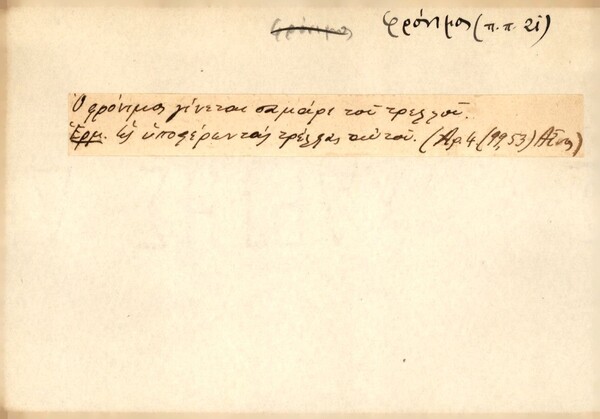 φρόνιμος
φρόνιμος (π.π. 21)
Ὁ φρόνιμος γίνεται σαμάρι τοῦ τρελλοῦ.
Ἑρμ. ὡς ὑποφέρων τὰς τρέλλας αὐτοῦ. (Αρ. 4 (99, 53)